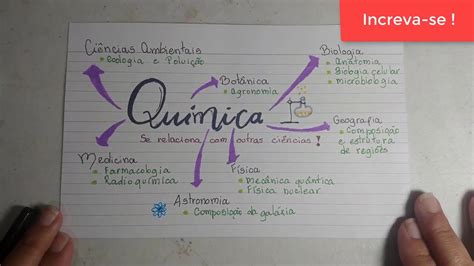 Increva-se !
Ciências Ambientais
Ecologia e Poluição
Biologia
Anatomia
Biologia celular
microbiologia
Botânica
agronomia
Química
Se relaciona com outras ciências !
Geografia
Composição
e estrutura
de regiões
Medicina
Farmacologia
Radioquímica
Física
mecânica quântica
Física nuclear
Astronomia
Composição da galáxia